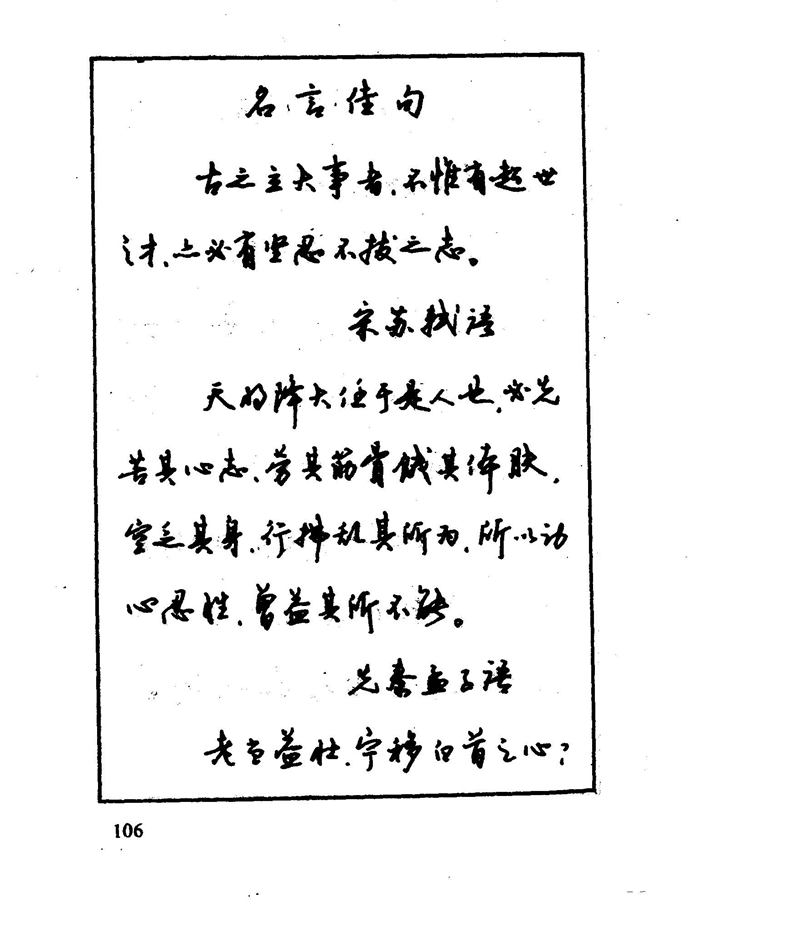 名言佳句
古之立大事者，不惟有超世
之才，亦必有坚忍不拔之志。
宋苏轼语
天将降大任于是人也，必先
苦其心志、劳其筋骨饿其体肤，
空乏其身，行拂乱其所为，所以动
心忍性，曾益其所不能。
先秦孟子语
老当益壮，宁移白首之心？
106